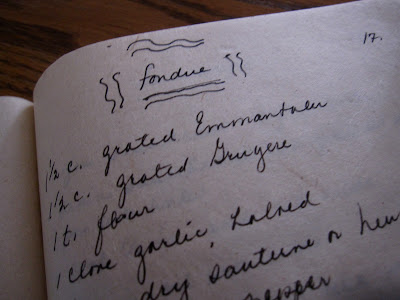 17.
Fondue
1 1/2 c. grated Emmantaler
1 1/2 c. grated Gruyere
1 t. flour
1 clove garlic, halved
dry sauturne or
pepper